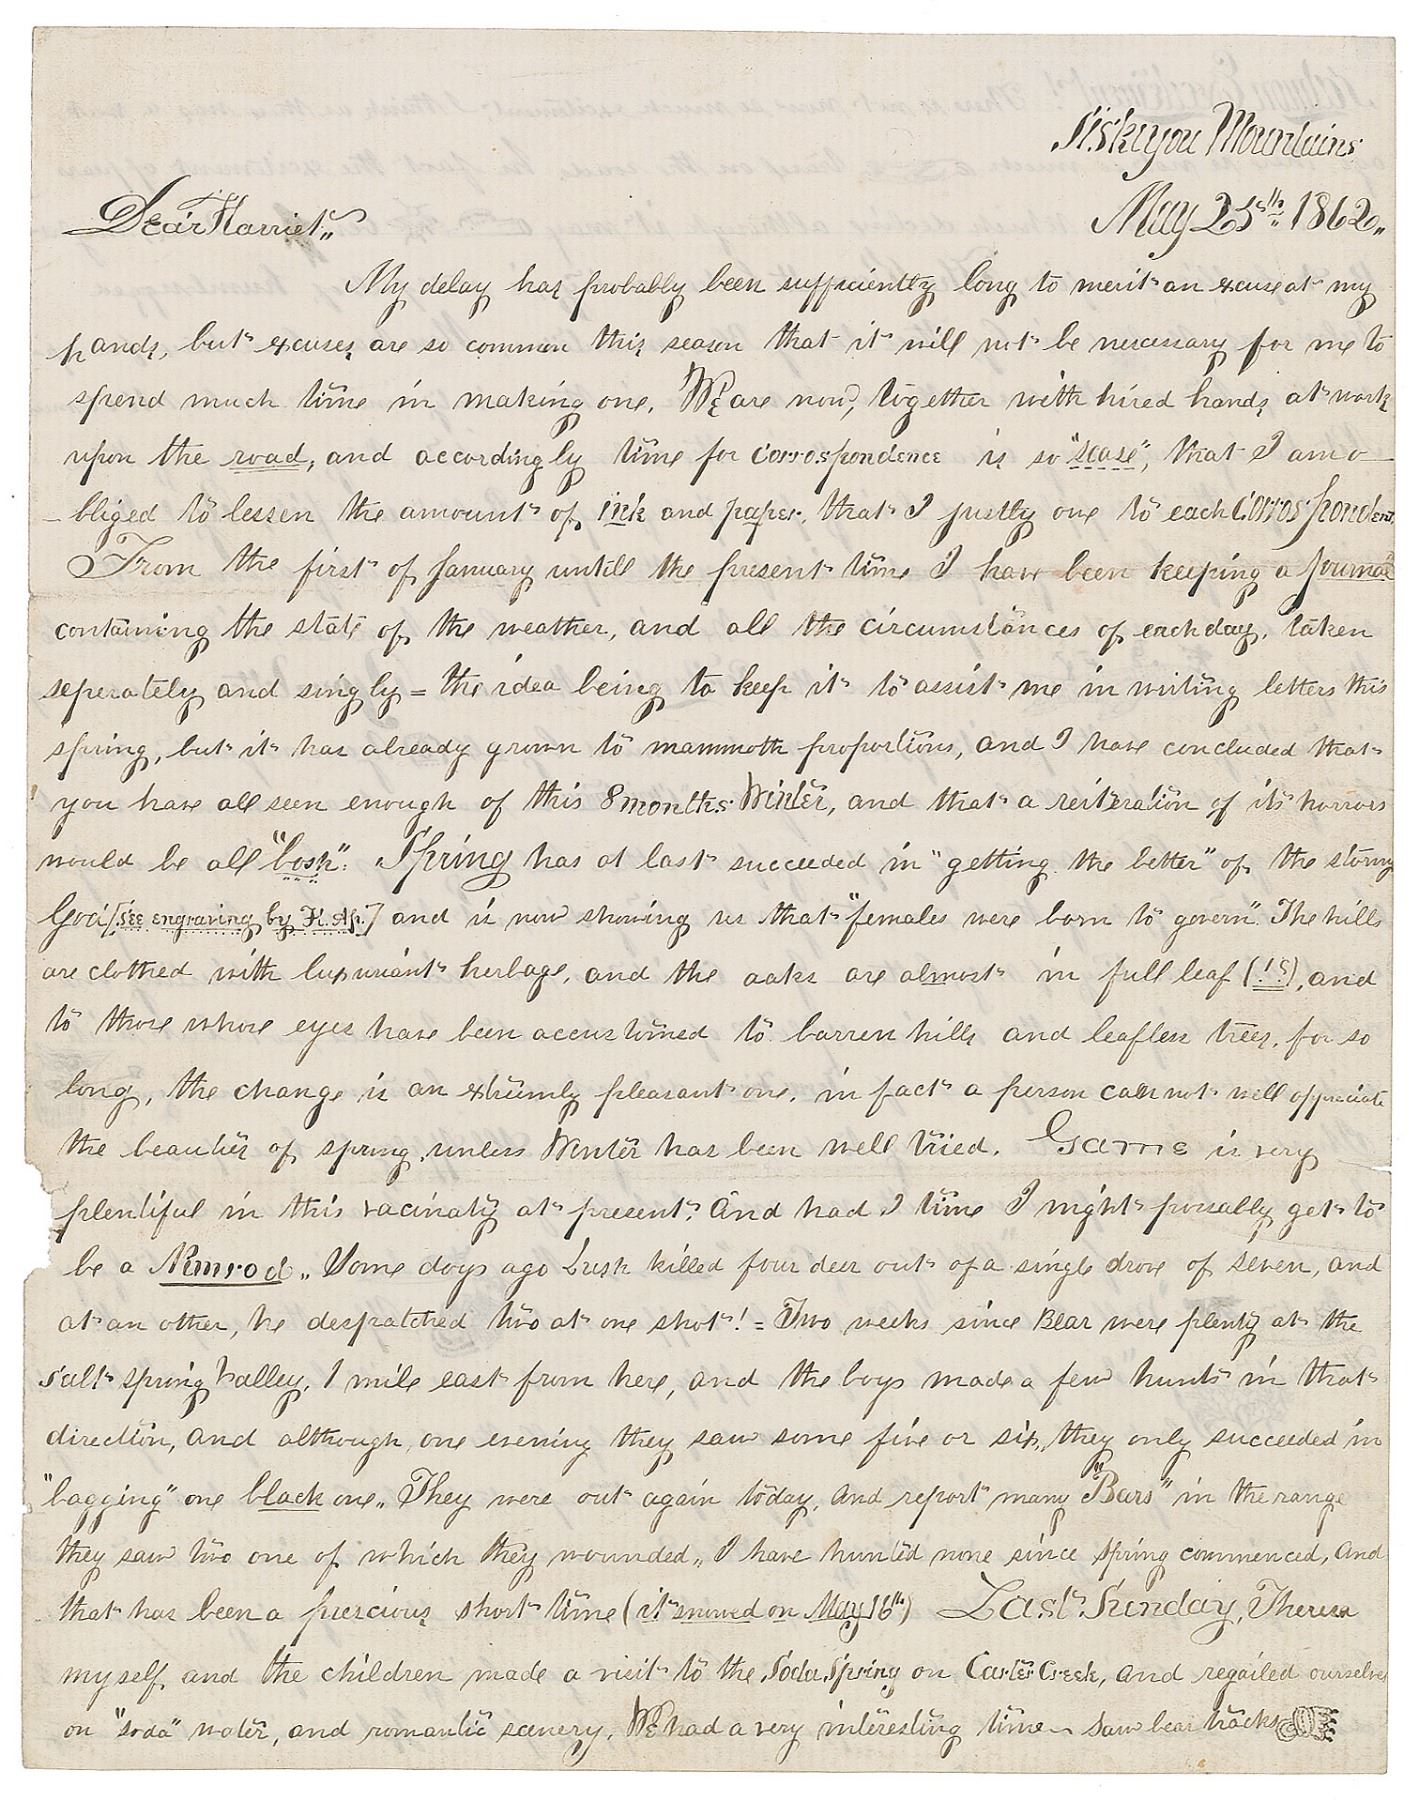 Siskiyou Mountains
May 25th 1862„
Dear Harriet„
My delay has probably been sufficiently long to merit an excuse at my
hands, but excuses are so common this season that it will not be necessary for me to
spend much time in making one. We are now, together with hired hands at work
upon the road, and accordingly time for correspondence is so "scase", that I am o-
-bliged to lessen the amount of ink and paper, that I justly owe to each Correspondent,
From the first of January untill the present time I have been keeping a Journal
containing the state of the weather, and all the circumstances of each day, taken
seperately and singly = the idea being to keep it to assist me in writing letters this
spring, but it has already grown to mammoth proportions, and I have concluded that
you have all seen enough of this 8 months Winter, and that a reiteration of its horrors
would be all "bosh". Spring has at last succeeded in "getting the better" of the stormy
God [see engraving by H. Ap.] and is now showing us that "females were born to govern". The hills
are clothed with luxuriant herbage, and the oaks are almost in full leaf (!S), and
to those whose eyes have been accustomed to barren hills and leafless trees, for so
long, the change is an extremly pleasant one, in fact a person cannot well appreciate
the beauties of spring, unless Winter has been well tried. Game is very
plentiful in this vacinaty at present. And had I time I might possably get to
be a Nimrod„ Some days ago Lush killed four deer out of a single drove of seven, and
at an other, he despatched two at one shot! = Two weeks since Bear were plenty at the
salt spring valley, 1 mile east from here, and the boys made a few hunts in that
direction, and although, one evening they saw some five or six, they only succeeded in
"bagging" one black one„ They were out again today, and report many "Bars" in the range
they saw two one of which they wounded„ I have hunted none since spring commenced, and
that has been a precious short time (it snowed on May 16th) Last Sunday, Theresa
myself, and the children made a visit to the Soda Spring on Carter Creek, and regailed ourselves
on "soda" water, and romantic scenery. We had a very interesting time saw bear tracks